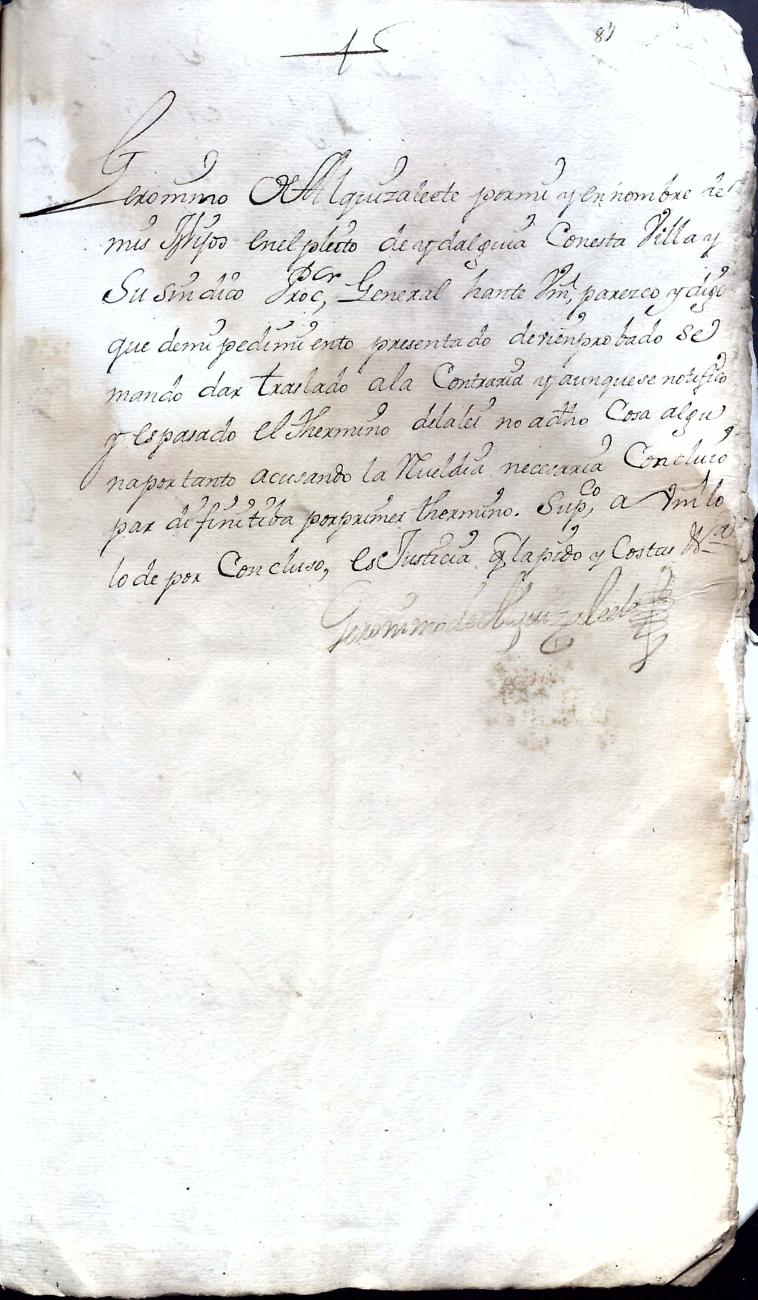 87
Geronimo de Alquizalecte por mi y en nombre de
mis Hijos en el pleito de ydalguia Con esta Villa y
Su sindico Procr, General hante Vm, parezco y digo
que de mi pedimiento presentado de vien probado se
mando dar traslado a la Contraria y aunque se notifico
y es pasado el thermino de la lei no a dho Cosa algu
na por tanto acusando la Rueldia necesaria Concluio
par difinitiba por primer thermino. Supco, a Vm lo
lo de por Concluso, es Justicia q la pido y Costas &a
Geronimo de Alquizalecte